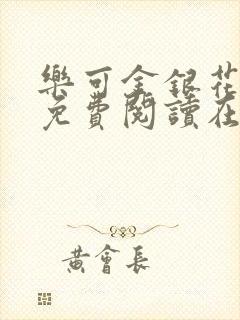 樂可金銀花
免費閱讀在
黃會長